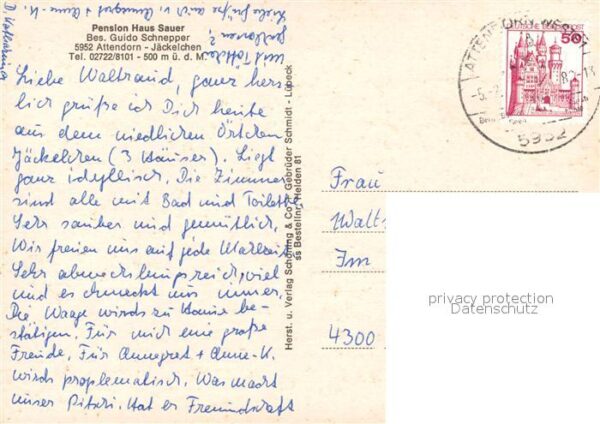 Pension Haus Sauer
Bes. Guido Schnepper
5952 Attendorn - Jäckelchen
Tel. 02722/8101 - 500 m ü. d. M.
Liebe Waltraud, ganz herz-
lich grüße ich Dich heute
aus dem niedlichen Örtchen
Jäckelchen (3 Häuser). Liegt
ganz idyllisch. Die Zimmer
sind alle mit Bad und Toilette
Sehr sauber und gemütlich.
Wir freuen uns auf jede Mahlzeit
Sehr abwechslungsreich, viel
und es schmeckt uns immer.
Die Waage wirds zu Hause be-
stätigen. Für mich eine große
Freude, Für Annegret + Anne-K.
wirds proplematisch. Was macht
unser Pitzi. Hat er Freundschaft
mit
geschlossen?
Liebe Grüße auch v. Annegret + Anne-K.
D.
Herst. u. Verlag Schöning & Co + Gebrüder Schmidt - Lübeck
ss Bestellnr. Helden 81
50
ATTENDORN, WESTF 1
5952
Frau
Walt
Im
4300
privacy protection
Datenschutz